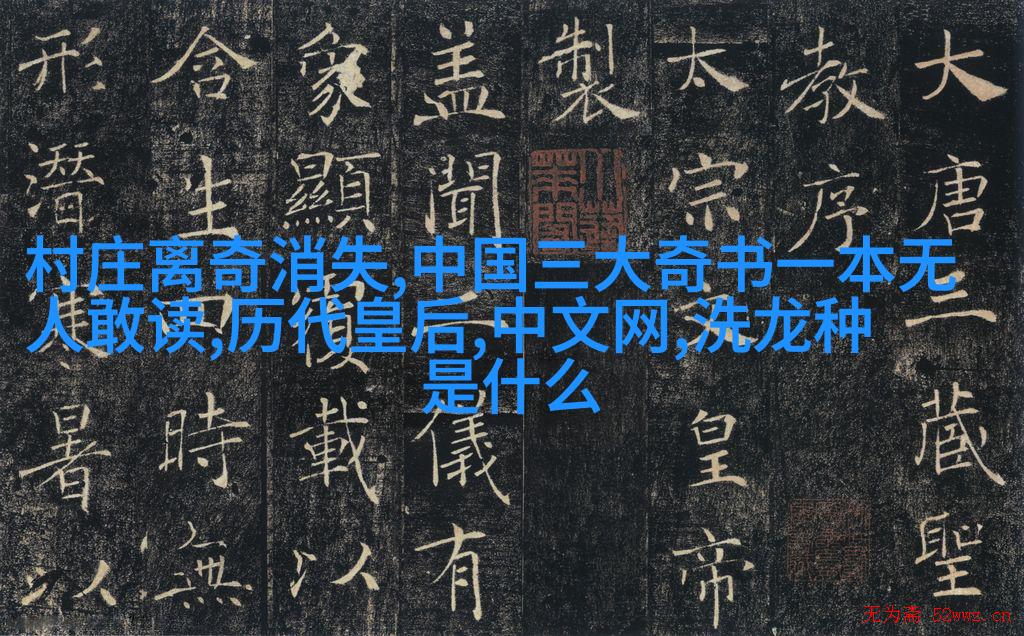 村庄离奇消失,中国三大奇书一本无
人敢读,历代皇后,中文网,洗龙种
是什么
大唐三藏聖
教序
太宗文皇帝
製
盖聞二儀有
象顯覆載以
含生四時無
形潛寒暑以
无为斋 52wwz.cn